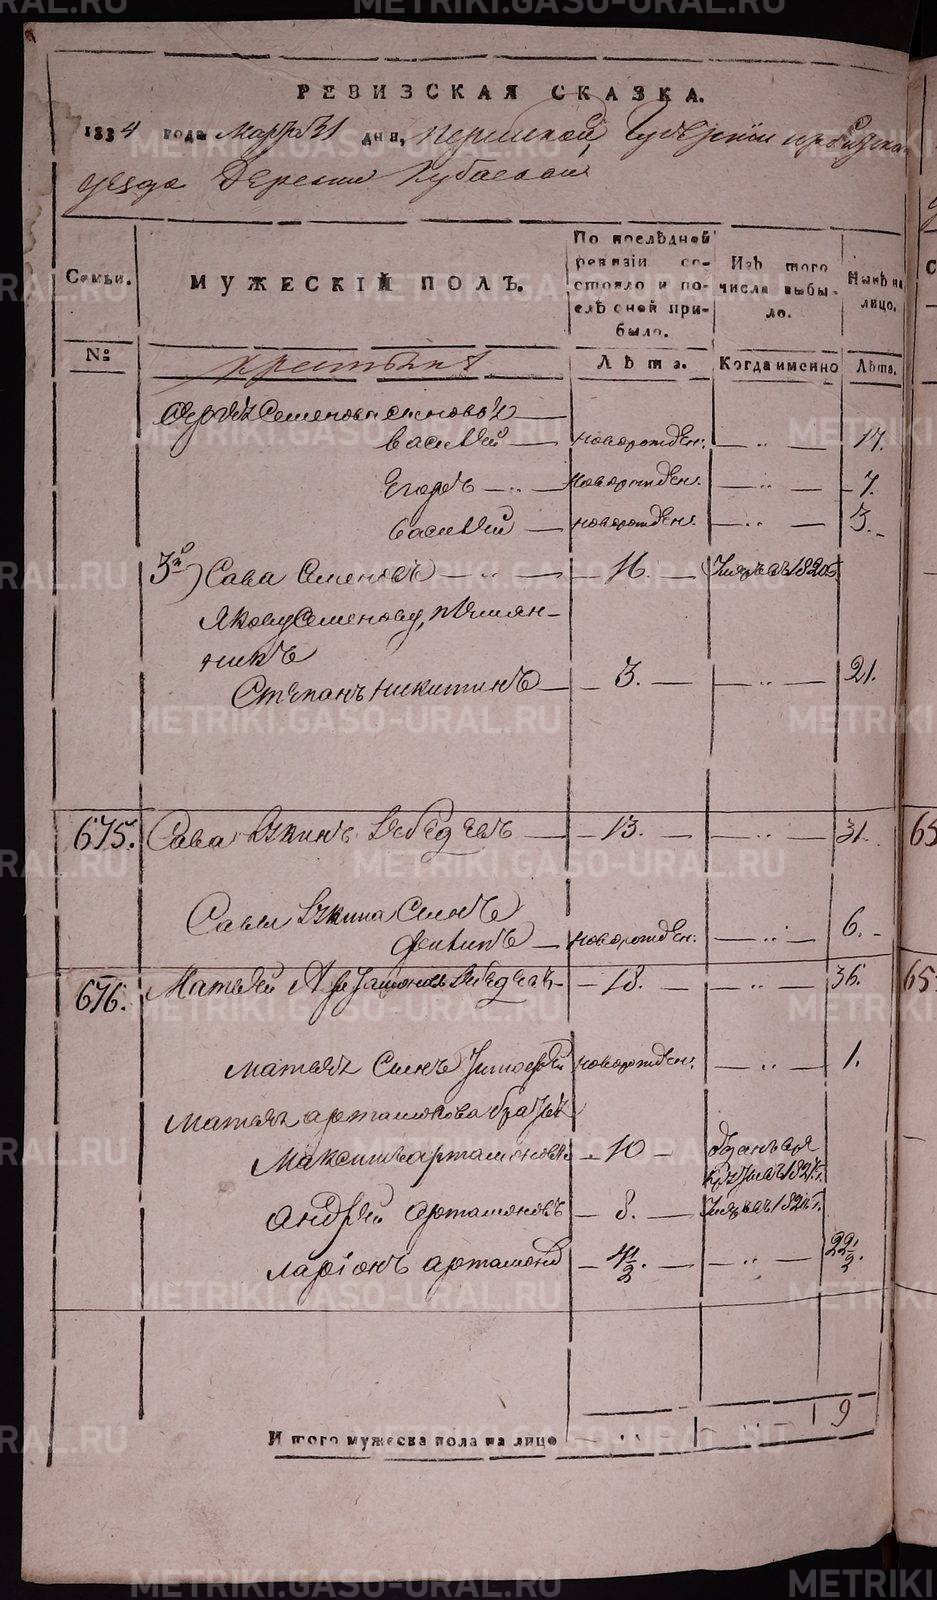 РЕВИЗСКАЯ СКАЗКА.
1834 года Марта 31 дня, Пермской Губернии Ирбитска
уезда Деревни Кубаевой
Семьи.
МУЖЕСКІЙ ПОЛЪ.
По послѣдней ревизіи состояло и послѣ оной прибыло.
Изъ того числа выбыло.
Нынѣ на лицо.
№
крестьяня
Лѣта.
Когда именно
Лѣта.
Семенова сыновья
василей — новорожден. — 17.
Егоръ — новорожден. — 7.
василей — новорожден. — 3.
3й) Сава Семеновъ — 16. — 1826
Якову Семенову, племян-
никъ
Степанъ никитинъ — 3. — 21.
675. Сава Лебедевъ — 13. — 31.
Савы сынъ
Филипъ — новорожден. — 6.
676. Матвей Артамоновъ Лебедевъ — 18. — 36.
Матвея Сынъ Тимофей новорожден. — 1.
Матвея артамонова братья
Максимъ артамоновъ — 10 — отданъ въ
рекруты въ 182
Андрей артамоновъ — 8. — 182
ларіонъ артамонов — 4 1/2. — 22 1/2
Итого мужеска пола на лицо 9
METRIKI.GASO-URAL.RU